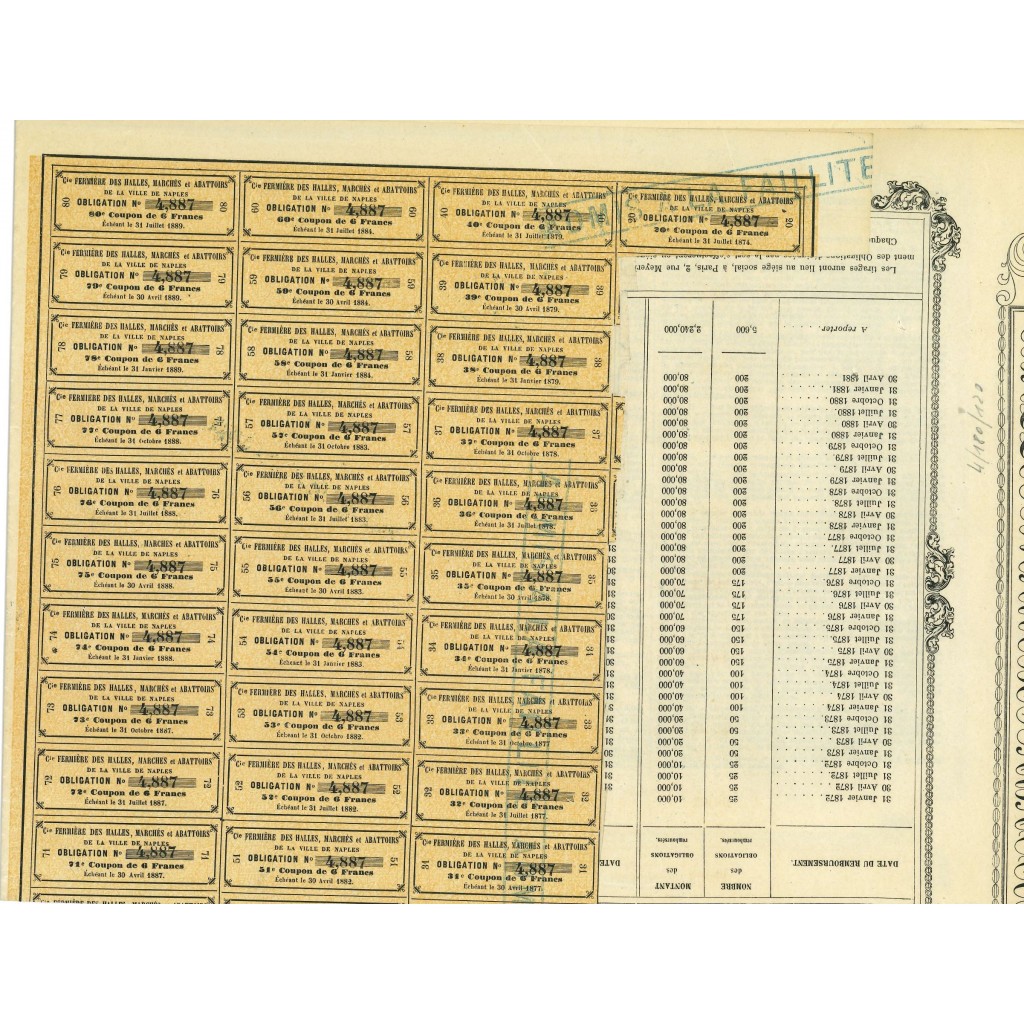 Cie FERMIÈRE DES HALLES, MARCHÉS et ABATTOIRS
DE LA VILLE DE NAPLES
80 OBLIGATION No 4,887 80
80e Coupon de 6 Francs
Échéant le 31 Juillet 1889.
Cie FERMIÈRE DES HALLES, MARCHÉS et ABATTOIRS
DE LA VILLE DE NAPLES
60 OBLIGATION No 4,887 60
60e Coupon de 6 Francs
Échéant le 31 Juillet 1884.
Cie FERMIÈRE DES HALLES, MARCHÉS et ABATTOIRS
DE LA VILLE DE NAPLES
40 OBLIGATION No 4,887 40
40e Coupon de 6 Francs
Échéant le 31 Juillet 1879.
Cie FERMIÈRE DES HALLES, MARCHÉS et ABATTOIRS
DE LA VILLE DE NAPLES
20 OBLIGATION No 4,887 20
20e Coupon de 6 Francs
Échéant le 31 Juillet 1874.
Cie FERMIÈRE DES HALLES, MARCHÉS et ABATTOIRS
DE LA VILLE DE NAPLES
79 OBLIGATION No 4,887 79
79e Coupon de 6 Francs
Échéant le 30 Avril 1889.
Cie FERMIÈRE DES HALLES, MARCHÉS et ABATTOIRS
DE LA VILLE DE NAPLES
59 OBLIGATION No 4,887 59
59e Coupon de 6 Francs
Échéant le 30 Avril 1884.
Cie FERMIÈRE DES HALLES, MARCHÉS et ABATTOIRS
DE LA VILLE DE NAPLES
39 OBLIGATION No 4,887 39
39e Coupon de 6 Francs
Échéant le 30 Avril 1879.
Cie FERMIÈRE DES HALLES, MARCHÉS et ABATTOIRS
DE LA VILLE DE NAPLES
78 OBLIGATION No 4,887 78
78e Coupon de 6 Francs
Échéant le 31 Janvier 1889.
Cie FERMIÈRE DES HALLES, MARCHÉS et ABATTOIRS
DE LA VILLE DE NAPLES
58 OBLIGATION No 4,887 58
58e Coupon de 6 Francs
Échéant le 31 Janvier 1884.
Cie FERMIÈRE DES HALLES, MARCHÉS et ABATTOIRS
DE LA VILLE DE NAPLES
38 OBLIGATION No 4,887 38
38e Coupon de 6 Francs
Échéant le 31 Janvier 1879.
Cie FERMIÈRE DES HALLES, MARCHÉS et ABATTOIRS
DE LA VILLE DE NAPLES
77 OBLIGATION No 4,887 77
77e Coupon de 6 Francs
Échéant le 31 Octobre 1888.
Cie FERMIÈRE DES HALLES, MARCHÉS et ABATTOIRS
DE LA VILLE DE NAPLES
57 OBLIGATION No 4,887 57
57e Coupon de 6 Francs
Échéant le 31 Octobre 1883.
Cie FERMIÈRE DES HALLES, MARCHÉS et ABATTOIRS
DE LA VILLE DE NAPLES
37 OBLIGATION No 4,887 37
37e Coupon de 6 Francs
Échéant le 31 Octobre 1878.
Cie FERMIÈRE DES HALLES, MARCHÉS et ABATTOIRS
DE LA VILLE DE NAPLES
76 OBLIGATION No 4,887 76
76e Coupon de 6 Francs
Échéant le 31 Juillet 1888.
Cie FERMIÈRE DES HALLES, MARCHÉS et ABATTOIRS
DE LA VILLE DE NAPLES
56 OBLIGATION No 4,887 56
56e Coupon de 6 Francs
Échéant le 31 Juillet 1883.
Cie FERMIÈRE DES HALLES, MARCHÉS et ABATTOIRS
DE LA VILLE DE NAPLES
36 OBLIGATION No 4,887 36
36e Coupon de 6 Francs
Échéant le 31 Juillet 1878.
Cie FERMIÈRE DES HALLES, MARCHÉS et ABATTOIRS
DE LA VILLE DE NAPLES
75 OBLIGATION No 4,887 75
75e Coupon de 6 Francs
Échéant le 30 Avril 1888.
Cie FERMIÈRE DES HALLES, MARCHÉS et ABATTOIRS
DE LA VILLE DE NAPLES
55 OBLIGATION No 4,887 55
55e Coupon de 6 Francs
Échéant le 30 Avril 1883.
Cie FERMIÈRE DES HALLES, MARCHÉS et ABATTOIRS
DE LA VILLE DE NAPLES
35 OBLIGATION No 4,887 35
35e Coupon de 6 Francs
Échéant le 30 Avril 1878.
Cie FERMIÈRE DES HALLES, MARCHÉS et ABATTOIRS
DE LA VILLE DE NAPLES
74 OBLIGATION No 4,887 74
74e Coupon de 6 Francs
Échéant le 31 Janvier 1888.
Cie FERMIÈRE DES HALLES, MARCHÉS et ABATTOIRS
DE LA VILLE DE NAPLES
54 OBLIGATION No 4,887 54
54e Coupon de 6 Francs
Échéant le 31 Janvier 1883
Cie FERMIÈRE DES HALLES, MARCHÉS et ABATTOIRS
DE LA VILLE DE NAPLES
34 OBLIGATION No 4,887 34
34e Coupon de 6 Francs
Échéant le 31 Janvier 1878.
Cie FERMIÈRE DES HALLES, MARCHÉS et ABATTOIRS
DE LA VILLE DE NAPLES
73 OBLIGATION No 4,887 73
73e Coupon de 6 Francs
Échéant le 31 Octobre 1887.
Cie FERMIÈRE DES HALLES, MARCHÉS et ABATTOIRS
DE LA VILLE DE NAPLES
53 OBLIGATION No 4,887 53
53e Coupon de 6 Francs
Échéant le 31 Octobre 1882.
Cie FERMIÈRE DES HALLES, MARCHÉS et ABATTOIRS
DE LA VILLE DE NAPLES
33 OBLIGATION No 4,887 33
33e Coupon de 6 Francs
Échéant le 31 Octobre 1877
Cie FERMIÈRE DES HALLES, MARCHÉS et ABATTOIRS
DE LA VILLE DE NAPLES
72 OBLIGATION No 4,887 72
72e Coupon de 6 Francs
Échéant le 31 Juillet 1887.
Cie FERMIÈRE DES HALLES, MARCHÉS et ABATTOIRS
DE LA VILLE DE NAPLES
52 OBLIGATION No 4,887 52
52e Coupon de 6 Francs
Échéant le 31 Juillet 1882.
Cie FERMIÈRE DES HALLES, MARCHÉS et ABATTOIRS
DE LA VILLE DE NAPLES
32 OBLIGATION No 4,887 32
32e Coupon de 6 Francs
Échéant le 31 Juillet 1877.
Cie FERMIÈRE DES HALLES, MARCHÉS et ABATTOIRS
DE LA VILLE DE NAPLES
71 OBLIGATION No 4,887 71
71e Coupon de 6 Francs
Échéant le 30 Avril 1887.
Cie FERMIÈRE DES HALLES, MARCHÉS et ABATTOIRS
DE LA VILLE DE NAPLES
51 OBLIGATION No 4,887 51
51e Coupon de 6 Francs
Échéant le 30 Avril 1882.
Cie FERMIÈRE DES HALLES, MARCHÉS et ABATTOIRS
DE LA VILLE DE NAPLES
31 OBLIGATION No 4,887 31
31e Coupon de 6 Francs
Échéant le 30 Avril 1877.
LA FAILLITE
DATE DU REMBOURSEMENT. NOMBRE des OBLIGATIONS remboursées. MONTANT des OBLIGATIONS remboursées. DATE
31 Janvier 1872 25 10,000
30 Avril 1872 25 10,000
31 Juillet 1872 25 10,000
31 Octobre 1872 25 10,000
30 Avril 1873 50 20,000
31 Juillet 1873 50 20,000
31 Octobre 1873 50 20,000
31 Janvier 1874 100 40,000
30 Avril 1874 100 40,000
31 Juillet 1874 100 40,000
31 Octobre 1874 100 40,000
31 Janvier 1875 150 60,000
30 Avril 1875 150 60,000
31 Juillet 1875 150 60,000
31 Octobre 1875 150 60,000
31 Janvier 1876 175 70,000
30 Avril 1876 175 70,000
31 Juillet 1876 175 70,000
31 Octobre 1876 175 70,000
31 Janvier 1877 200 80,000
30 Avril 1877 200 80,000
31 Juillet 1877 200 80,000
31 Octobre 1877 200 80,000
31 Janvier 1878 200 80,000
30 Avril 1878 200 80,000
31 Juillet 1878 200 80,000
31 Octobre 1878 200 80,000
31 Janvier 1879 200 80,000
30 Avril 1879 200 80,000
31 Juillet 1879 200 80,000
31 Octobre 1879 200 80,000
31 Janvier 1880 200 80,000
30 Avril 1880 200 80,000
31 Juillet 1880 200 80,000
31 Octobre 1880 200 80,000
31 Janvier 1881 200 80,000
30 Avril 1881 200 80,000
A reporter 5,600 2,240,000
Les tirages auront lieu au siége social, à Paris, 2, rue Meyer
ment des Obligations
Chaque